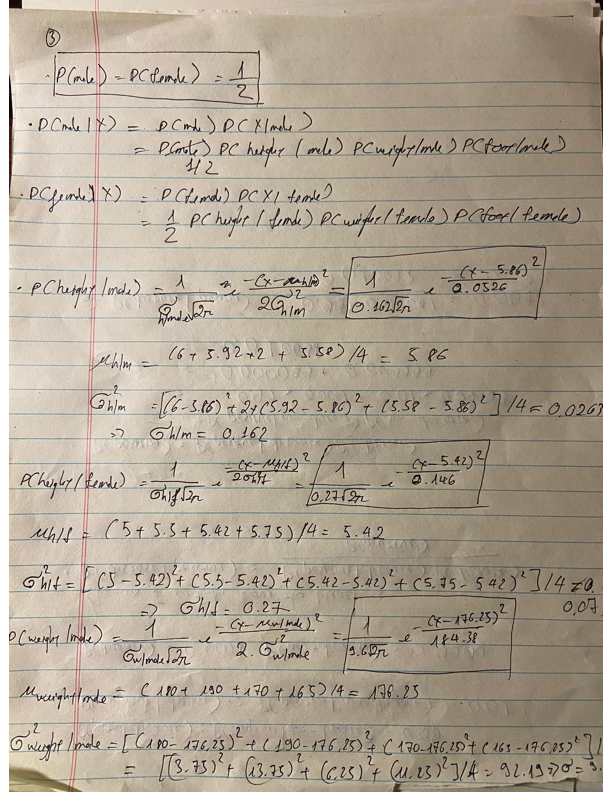 ③
· P(male) = P(female) = 1/2
· P(male | X) = P(male) P(X | male)
= P(male) P(height | male) P(weight | male) P(foot | male)
1/2
· P(female | X) = P(female) P(X | female)
= 1/2 P(height | female) P(weight | female) P(foot | female)
· P(height | male) = 1/(σh/male√2π) e^(-(x-μh/m)²/2σ²h/m) = 1/(0.162√2π) e^(-(x-5.86)²/0.0526)
μh/m = (6 + 5.92*2 + 5.58)/4 = 5.86
σ²h/m = [(6-5.86)² + 2*(5.92-5.86)² + (5.58-5.86)²]/4 = 0.0263
=> σh/m = 0.162
P(height / female) = 1/(σh/f√2π) e^(-(x-μh/f)²/2σ²h/f) = 1/(0.27√2π) e^(-(x-5.42)²/0.146)
μh/f = (5 + 5.5 + 5.42 + 5.75)/4 = 5.42
σ²h/f = [(5-5.42)² + (5.5-5.42)² + (5.42-5.42)² + (5.75-5.42)²]/4 = 0.
0.07
=> σh/f = 0.27
P(weight / male) = 1/(σw/male√2π) e^(-(x-μw/male)²/2.σ²w/male) = 1/(9.6√2π) e^(-(x-176.25)²/184.38)
μweight/male = (180 + 190 + 170 + 165)/4 = 176.25
σ²weight/male = [(180-176.25)² + (190-176.25)² + (170-176.25)² + (165-176.25)²]/
= [(3.75)² + (13.75)² + (6.25)² + (11.25)²]/4 = 92.19 => σ = 9.